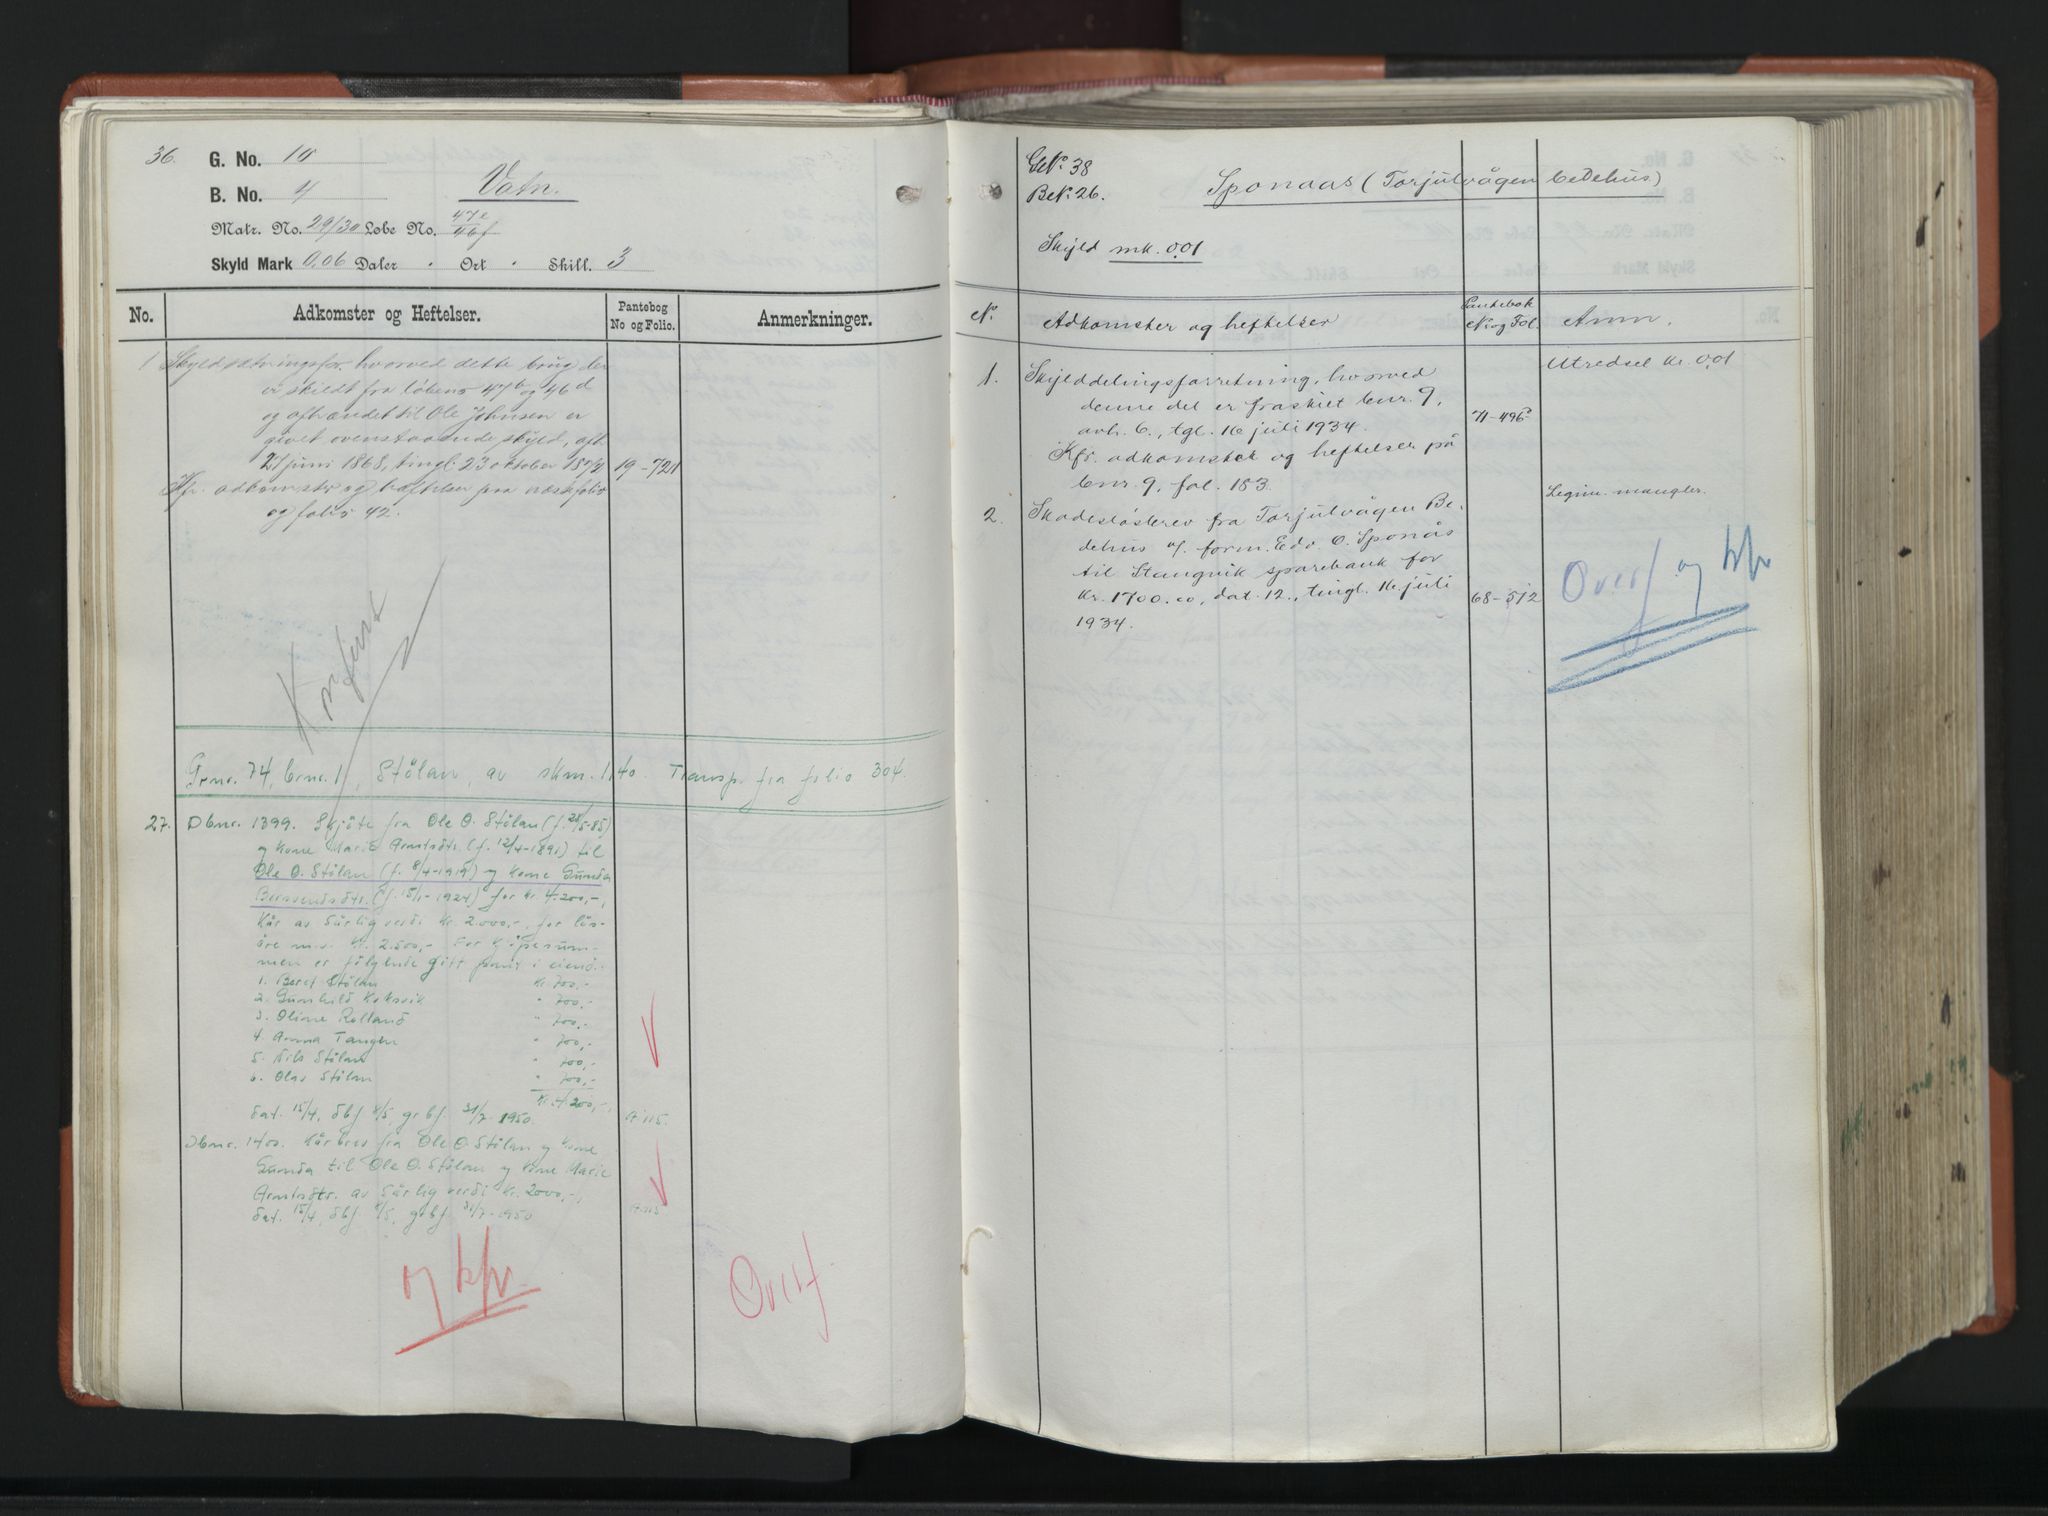 36.
G. No. 10
B. No. 4 Vatn.
Matr. No. 29/30 Løbe No. 47e/46f
Skyld Mark 0,06 Daler " Ort " Skill. 3
No. Adkomster og Heftelser. Pantebog No og Folio. Anmerkninger.
1 Skyldsætningsfor. hvorved dette brug der
er skildt fra løbeno 47b og 46d
og afhændet til Ole Johnsen er
givet ovenstaaende skyld, afh.
27 juni 1868, tingl. 23 oktober 19-721
Kfr. adkomster og heftelser paa næste folio
og folio 42.
Konferert
Grnr. 74, brnr. 1, Stölan, av skm. 1,40. Transp. fra folio 304.
27. Dbnr. 1399. Skjöte fra Ole O. Stölan (f. 28/5-85)
og kone Marie Arntsdtr. (f. 12/4-1891) til
Ole O. Stölan (f. 8/4-1919) og kone Gunda
(f. 15/1-1924) for kr. 4.200,-,
kår av 5årlig verdi kr. 2.000,-, for lös-
öre m.v. kr. 2.500,- For kjöpesum-
men er fölgende gitt panti i eiend.:
1. Beret Stölan kr. 700,-
2. Gunhild Koksvik " 700,-
3. Oline Rolland " 700,-
4. Anna Tangen " 700,-
5. Nils Stölan " 700,-
6. Olav Stölan " 700,-
Kr. 4.200,-,
dat. 15/4, dbf. 8/5, grbf. 31/7-1950. A: 115.
Dbnr. 1400. Kårbrev fra Ole O. Stölan og kone
Gunda til Ole O. Stölan og kone Marie
Arntsdtr. av 5årlig verdi kr. 2000,-,
dat. 15/4, dbf. 8/5, grbf. 31/7-1950 A: 115
og kfr.
Overf
G.№ 38
B.№ 26. Sponaas (Torjulvågen bedehus)
Skyld mk. 0,01
№ Adkomster og heftelser Pantebok № og Fol. Anm.
1. Skylddelingsforretning, hvorved
denne del er fraskilt bnr. 9,
avh. 6., tgl. 16 juli 1934. 71-495
Utredsel kr. 0,01
Kfr. adkomster og heftelser på
bnr. 9, fol. 183.
2. Skadesløsbrev fra Torjulvågen Be-
dehus v/ form. Edv. O. Sponås
til Stangvik sparebank for
kr. 1700.00, dat. 12., tingl. 16 juli 68-512
1934.
Legim. mangler.
Overf og kfr